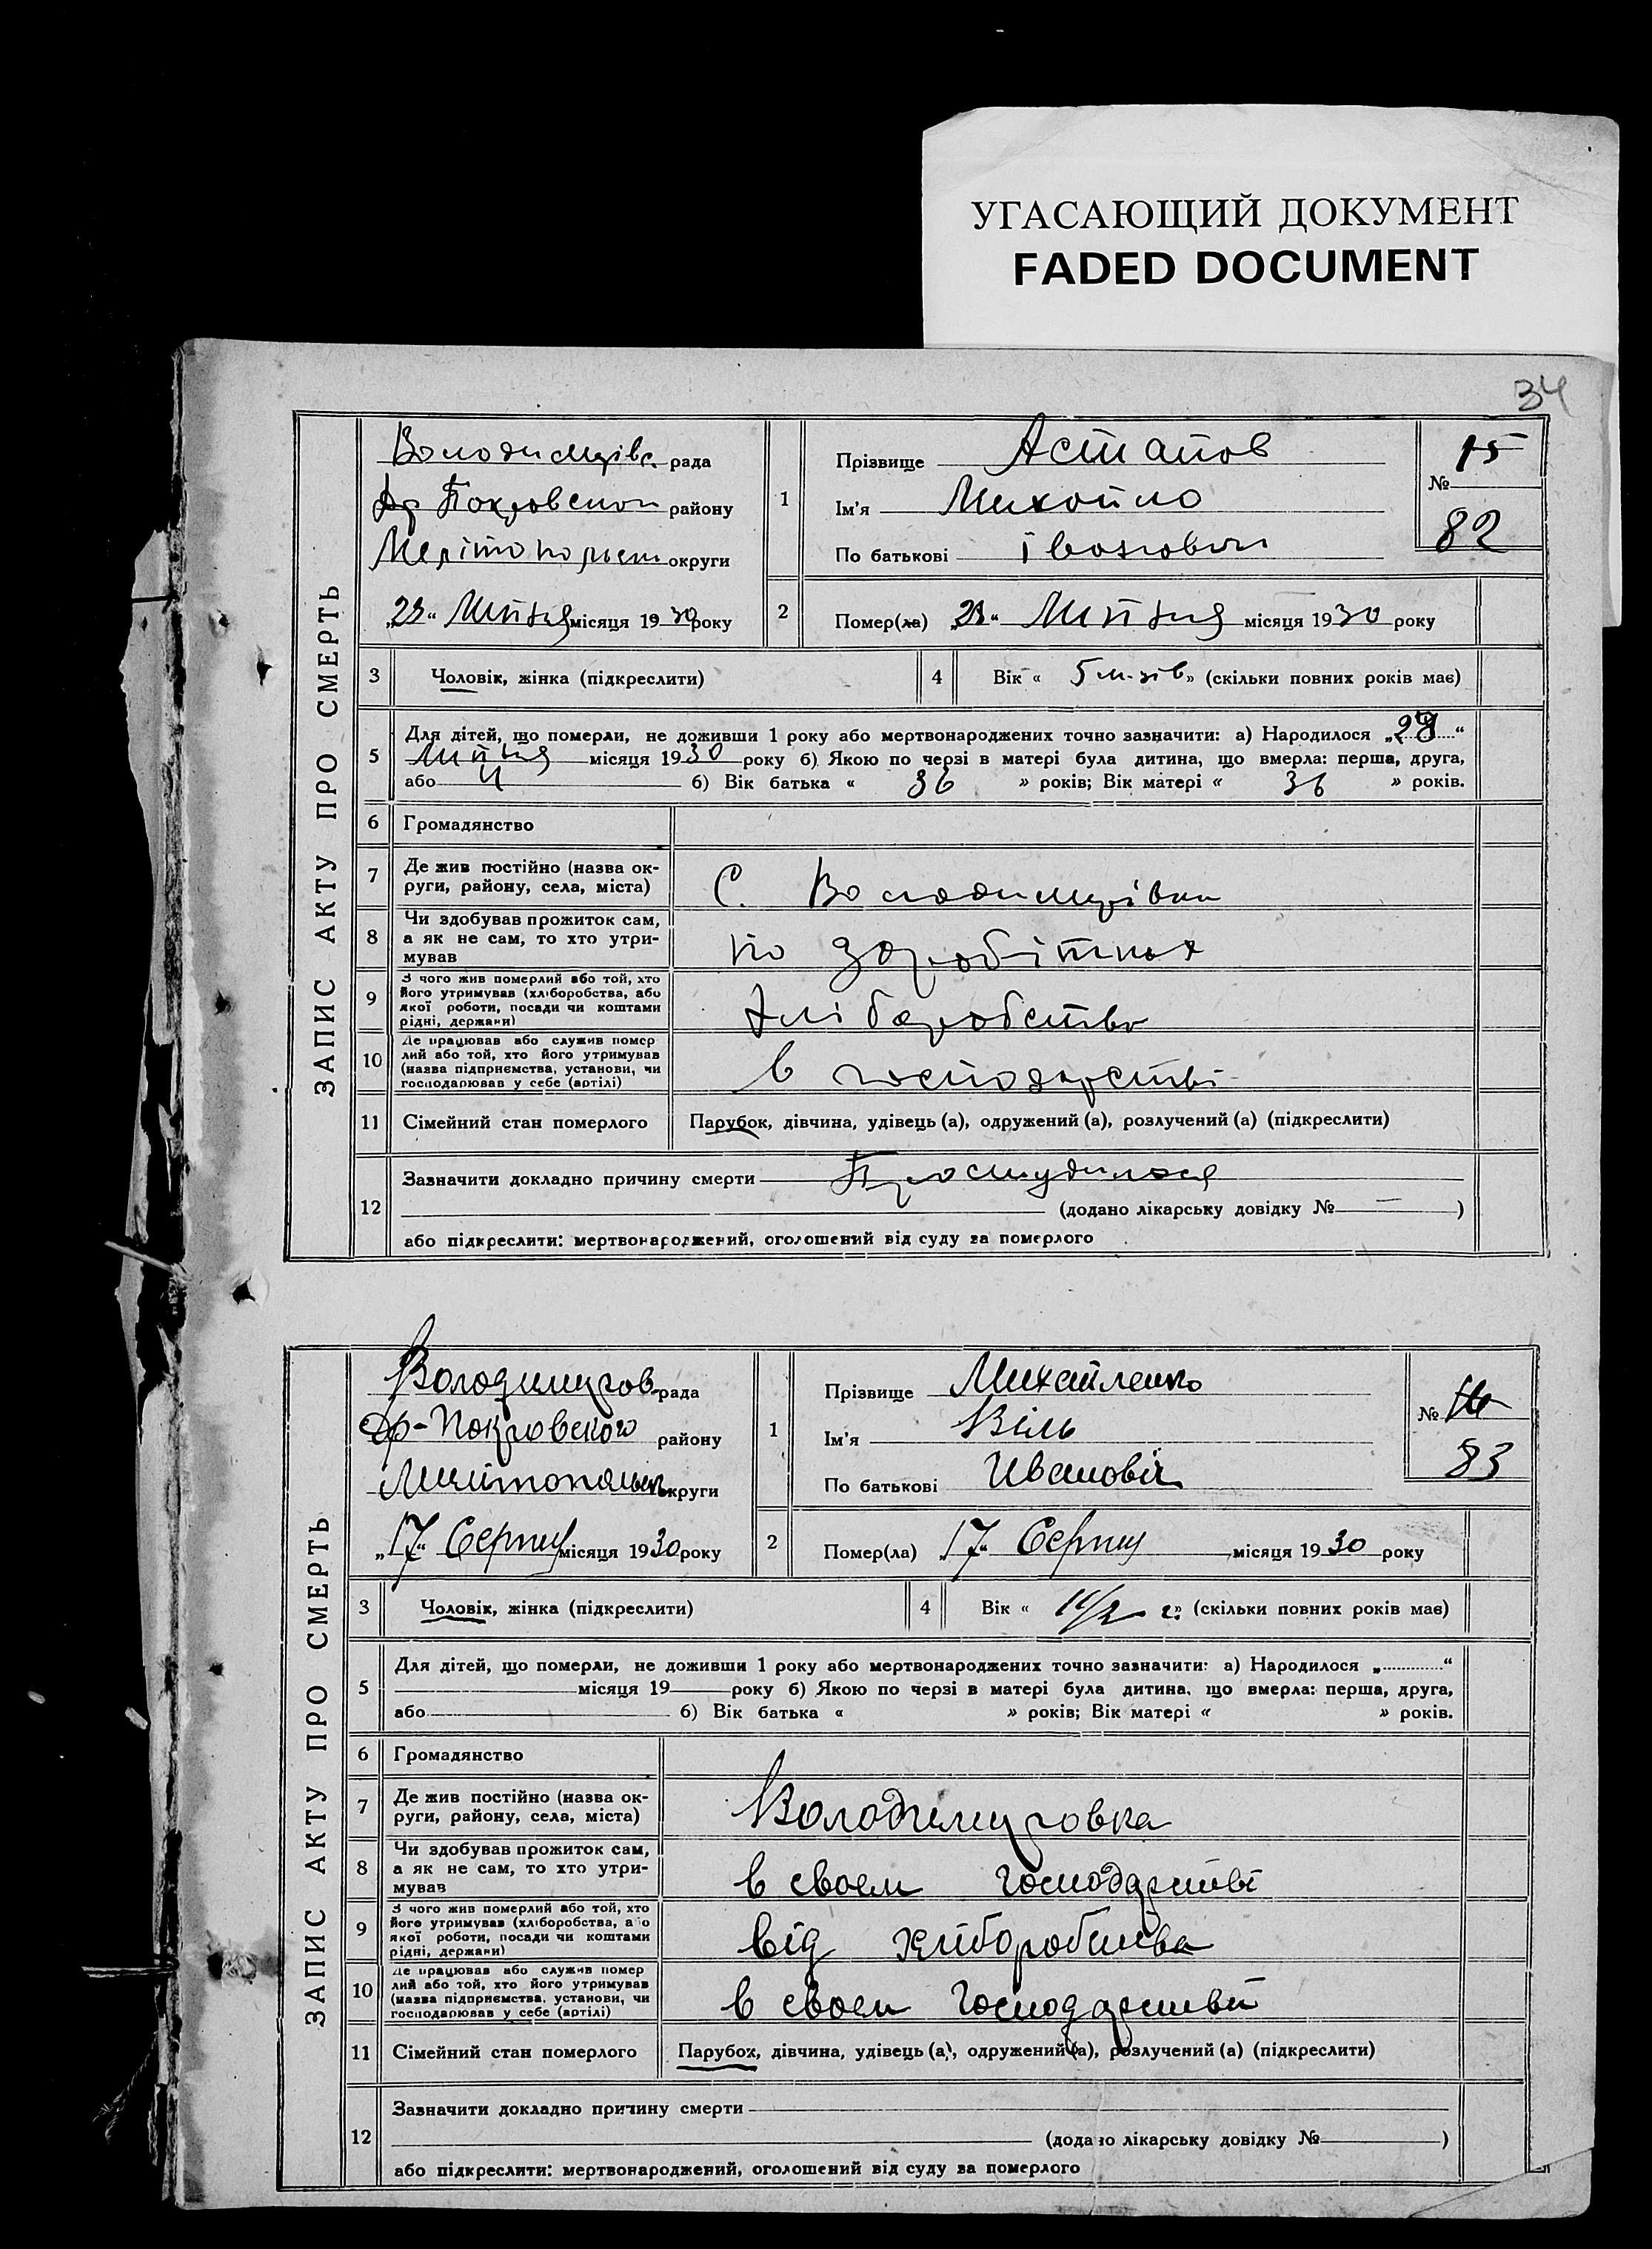 УГАСАЮЩИЙ ДОКУМЕНТ
FADED DOCUMENT
34
ЗАПИС АКТУ ПРО СМЕРТЬ
Володимирівс. рада
Покровської району
округи
"23" Липня місяця 1930 року
1
Прізвище Астапов
Ім'я Михайло
По батькові Івanович
№ 15
82
2
Помер(ла) "23" Липня місяця 1930 року
3 Чоловік, жінка (підкреслити)
4 Вік « 5 » (скільки повних років має)
5 Для дітей, що померли, не доживши 1 року або мертвонароджених точно зазначити: а) Народилося „ “
Липня місяця 1930 року б) Якою по черзі в матері була дитина, що вмерла: перша, друга,
або 4 б) Вік батька « 36 » років; Вік матері « 36 » років.
6 Громадянство
7 Де жив постійно (назва ок-
руги, району, села, міста) С. Володимирівка
8 Чи здобував прожиток сам,
а як не сам, то хто утри-
мував
на заробітках
9 З чого жив померлий або той, хто
його утримував (хліборобства, або
якої роботи, посади чи коштами
рідні, держави)
хліборобства
10 Де працював або служив помер
лий або той, хто його утримував
(назва підприємства, установи, чи
господарював у себе (артілі)
в господарстві
11 Сімейний стан померлого Парубок, дівчина, удівець (а), одружений (а), розлучений (а) (підкреслити)
12 Зазначити докладно причину смерти Простудился
(додано лікарську довідку № — )
або підкреслити: мертвонароджений, оголошений від суду за померлого
ЗАПИС АКТУ ПРО СМЕРТЬ
Володимиров рада
Др-Покровского району
округи
„17“ Серпня місяця 1930 року
1
Прізвище Михайленко
Ім'я Віль
По батькові Ивановіч
№ 16
83
2
Помер(ла) „17“ Серпня місяця 1930 року
3 Чоловік, жінка (підкреслити)
4 Вік « 1 1/2 г.» (скільки повних років має)
5 Для дітей, що померли, не доживши 1 року або мертвонароджених точно зазначити: а) Народилося „ “
місяця 19 року б) Якою по черзі в матері була дитина, що вмерла: перша, друга,
або б) Вік батька « » років; Вік матері « » років.
6 Громадянство
7 Де жив постійно (назва ок-
руги, району, села, міста) Володимировка
8 Чи здобував прожиток сам,
а як не сам, то хто утри-
мував
в своем господарстві
9 З чого жив померлий або той, хто
його утримував (хліборобства, або
якої роботи, посади чи коштами
рідні, держави)
від хліборобства
10 Де працював або служив помер
лий або той, хто його утримував
(назва підприємства, установи, чи
господарював у себе (артілі)
в своем господарстві
11 Сімейний стан померлого Парубок, дівчина, удівець (а), одружений (а), розлучений (а) (підкреслити)
12 Зазначити докладно причину смерти
(додано лікарську довідку № )
або підкреслити: мертвонароджений, оголошений від суду за померлого